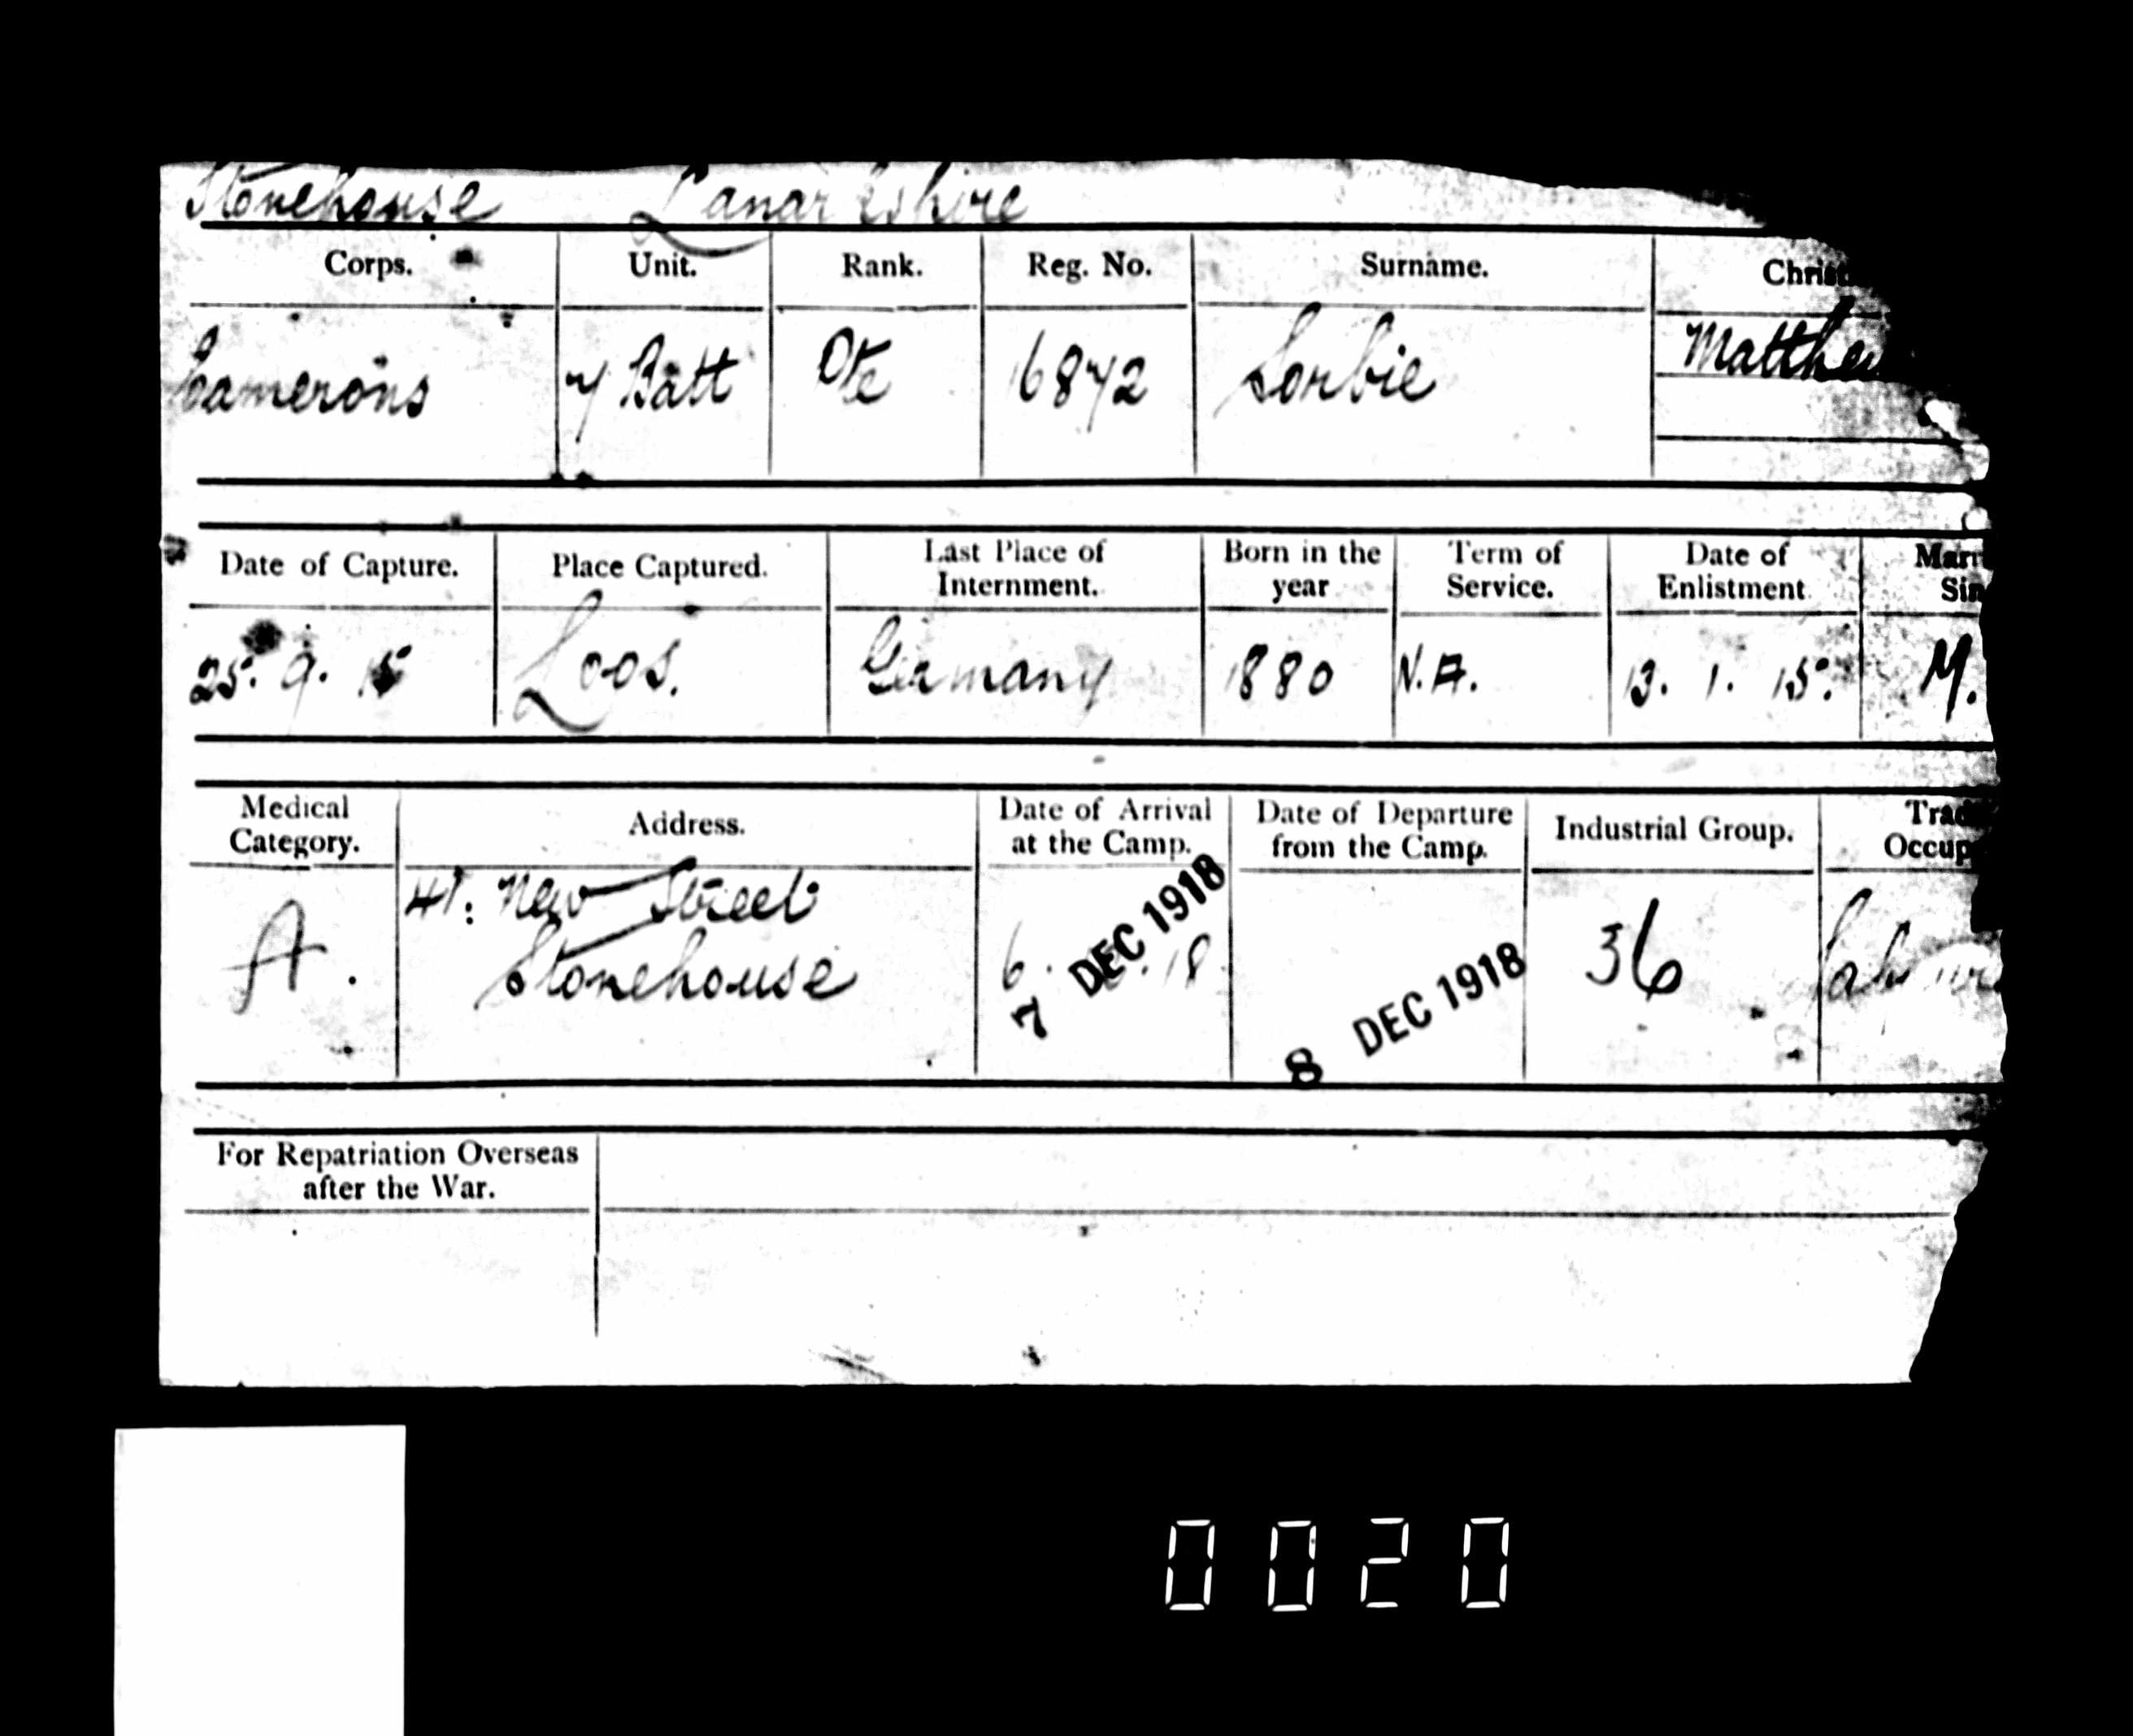 Stonehouse Lanarkshire
Corps. Unit. Rank. Reg. No. Surname. Christ
Camerons 7 Batt Pte 6872 Sorbie Matthew
Date of Capture. Place Captured. Last Place of Internment. Born in the year Term of Service. Date of Enlistment Marr Sin
25. 9. 15 Loos. Germany 1880 N.A. 13. 1. 15. M.
Medical Category. Address. Date of Arrival at the Camp. Date of Departure from the Camp. Industrial Group. Trad Occup
A. 41: New Street 6. .18 7 DEC 1918 8 DEC 1918 36
Stonehouse
For Repatriation Overseas
after the War.
0020